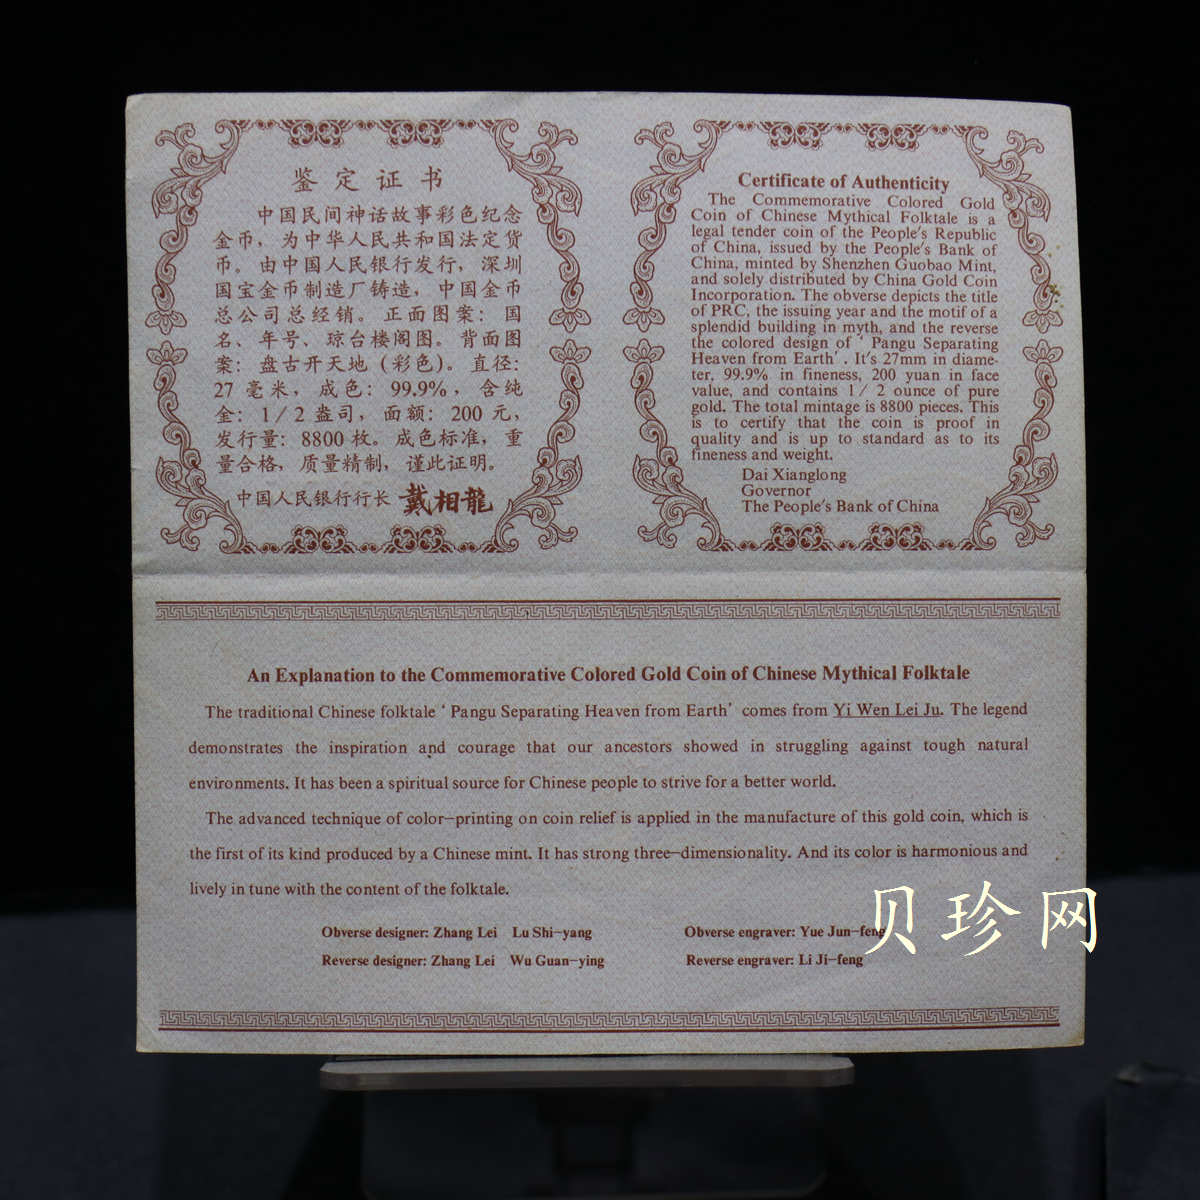 鉴定证书
中国民间神话故事彩色纪念
金币，为中华人民共和国法定货
币。由中国人民银行发行，深圳
国宝金币制造厂铸造，中国金币
总公司总经销。正面图案：国
名、年号、琼台楼阁图。背面图
案：盘古开天地（彩色）。直径：
27毫米，成色：99.9%，含纯
金：1/2盎司，面额：200元，
发行量：8800枚。成色标准，重
量合格，质量精制，谨此证明。
中国人民银行行长 戴相龍
Certificate of Authenticity
The Commemorative Colored Gold
Coin of Chinese Mythical Folktale is a
legal tender coin of the People's Republic
of China, issued by the People's Bank of
China, minted by Shenzhen Guobao Mint,
and solely distributed by China Gold Coin
Incorporation. The obverse depicts the title
of PRC, the issuing year and the motif of a
splendid building in myth, and the reverse
the colored design of ‘Pangu Separating
Heaven from Earth’. It's 27mm in diame-
ter, 99.9% in fineness, 200 yuan in face
value, and contains 1/2 ounce of pure
gold. The total mintage is 8800 pieces. This
is to certify that the coin is proof in
quality and is up to standard as to its
fineness and weight.
Dai Xianglong
Governor
The People's Bank of China
An Explanation to the Commemorative Colored Gold Coin of Chinese Mythical Folktale
The traditional Chinese folktale ‘Pangu Separating Heaven from Earth’ comes from Yi Wen Lei Ju. The legend
demonstrates the inspiration and courage that our ancestors showed in struggling against tough natural
environments. It has been a spiritual source for Chinese people to strive for a better world.
The advanced technique of color-printing on coin relief is applied in the manufacture of this gold coin, which is
the first of its kind produced by a Chinese mint. It has strong three-dimensionality. And its color is harmonious and
lively in tune with the content of the folktale.
Obverse designer: Zhang Lei Lu Shi-yang Obverse engraver: Yue Jun-feng
Reverse designer: Zhang Lei Wu Guan-ying Reverse engraver: Li Ji-feng
贝珍网